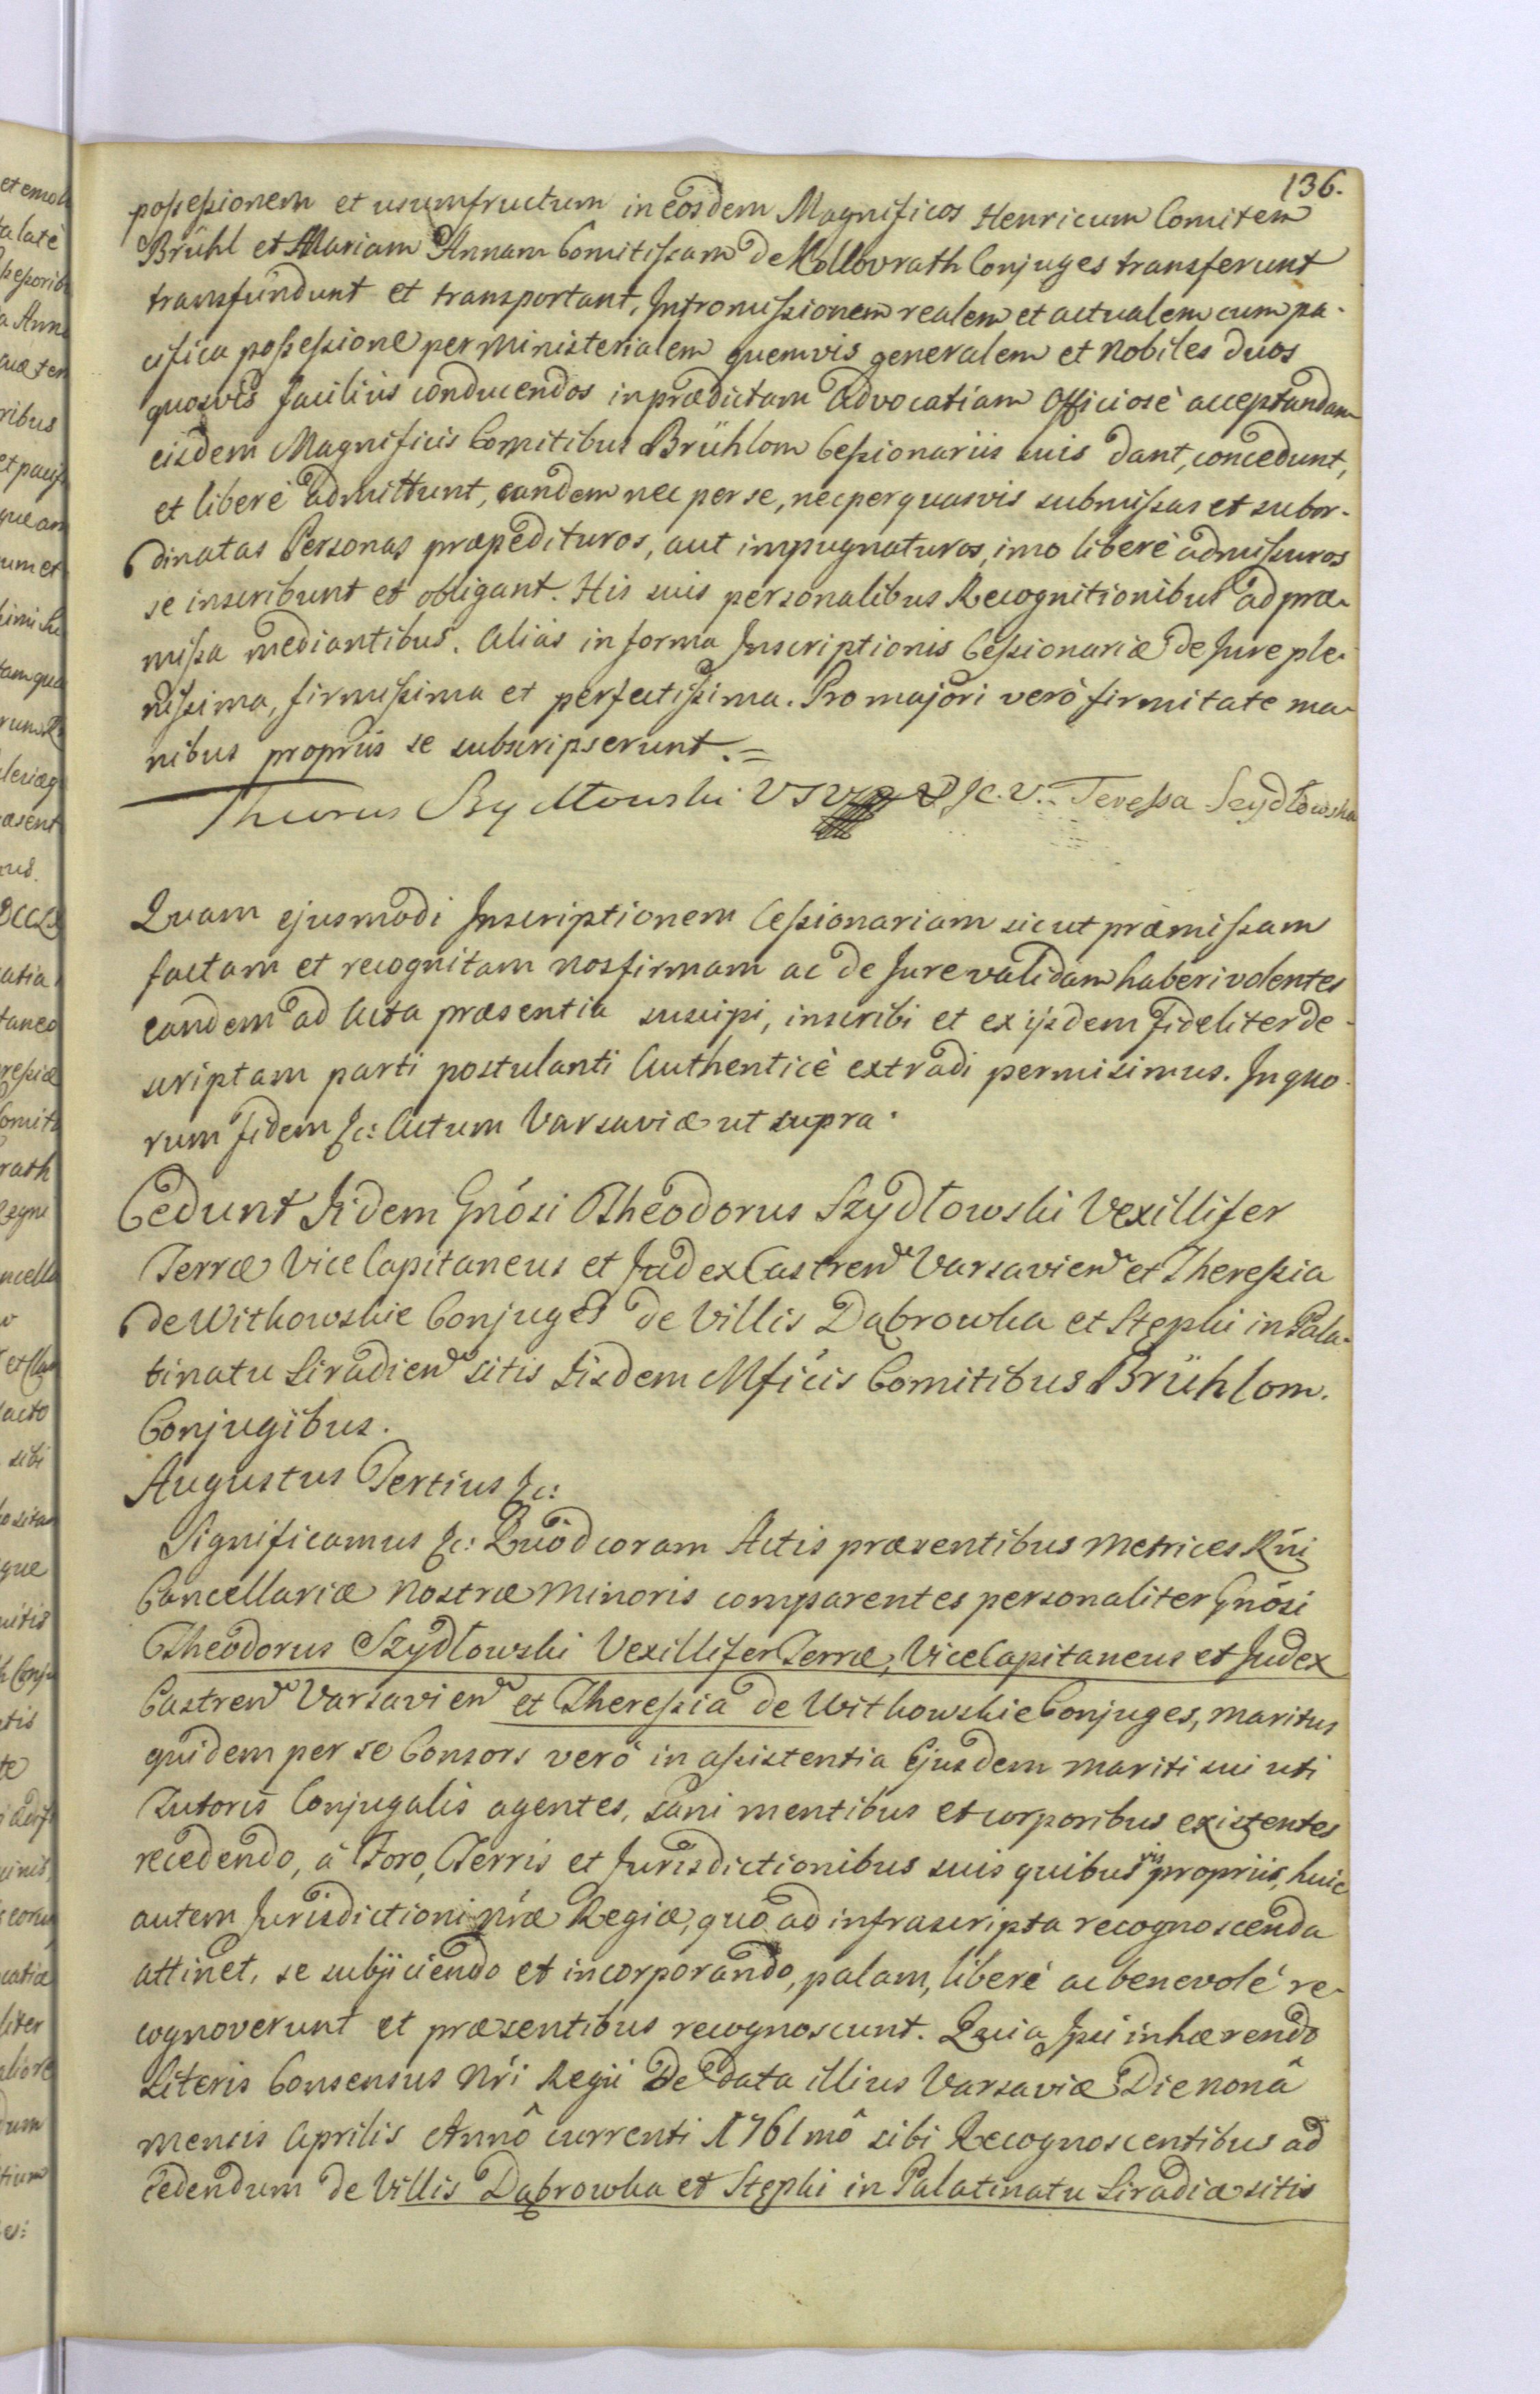 136.
possessionem et usumfructum in eosdem Magnificos Henricum Comitem
Brühl et Mariam Annam Comitissam de Kollovrath Conjuges transferunt
transfundunt et transportant, Intromissionem realem et actualem cum pa-
cifica possessione per Ministerialem quemvis generalem et Nobiles duos
quosvis facilius conducendos in praedictam Advocatiam Officiosè acceptandam
eisdem Magnificis Comitibus Brühlom Cessionariis suis dant, concedunt,
et liberè admittunt, eandem nec per se, nec per quasvis submissas et subor-
dinatas Personas praepedituros, aut impugnaturos, imo liberè admissuros
se inscribunt et obligant. His suis personalibus Recognitionibus ad prae-
missa mediantibus. Aliàs in forma Inscriptionis Cessionariae de Jure ple-
nissima, firmissima et perfectissima. Pro majori verò firmitate ma-
nibus propriis se subscripserunt.=
Szydłowski Teressa Szydłowska
Quam ejusmodi Inscriptionem Cessionariam sicut praemissam
factam et recognitam nos firmam ac de Jure validam haberi volentes
eandem ad Acta praesentia suscipi, inscribi et ex ijsdem fideliter de-
scriptam parti postulanti Authenticè extradi permisimus. In quo-
rum fidem &c: Actum Varsaviae ut supra.
Cedunt Iidem Gnósi Theodorus Szydłowski Vexillifer
Terrae Vice Capitaneus et Judex Castren Varsavien et Theressia
de Witkowskie Conjuges de Villis Dąbrowka et Stępki in Pala-
tinatu Siradien sitis Iisdem Mficis Comitibus Brühlom.
Conjugibus.
Augustus Tertius &c:
Significamus &c: Quod coram Actis praesentibus Metrices Rńi
Cancellariae Nostrae Minoris comparentes personaliter Gnósi
Theodorus Szydłowski Vexillifer Terrae, Vice Capitaneus et Judex
Castren Varsavien et Theressia de Witkowskie Conjuges, Maritus
quidem per se Consors verò in assistentia Ejusdem Mariti sui uti
Tutoris Conjugalis agentes, sani mentibus et corporibus existentes
recedendo, à Foro, Terris et Jurisdictionibus suis quibusvis propriis, huic
autem Jurisdictioni nrae Regiae, quo ad infrascripta recognoscenda
attinet, se subjiciendo et incorporando, palam, liberè ac benevolè re-
cognoverunt et praesentibus recognoscunt. Quia Ipsi inhaerendo
Literis Consensus Nri Regii De data illius Varsaviae Die nonâ
mensis Aprilis Annô currenti 1761mô sibi Recognoscentibus ad
cedendum de Villis Dąbrowka et Stępki in Palatinatu Siradiae sitis